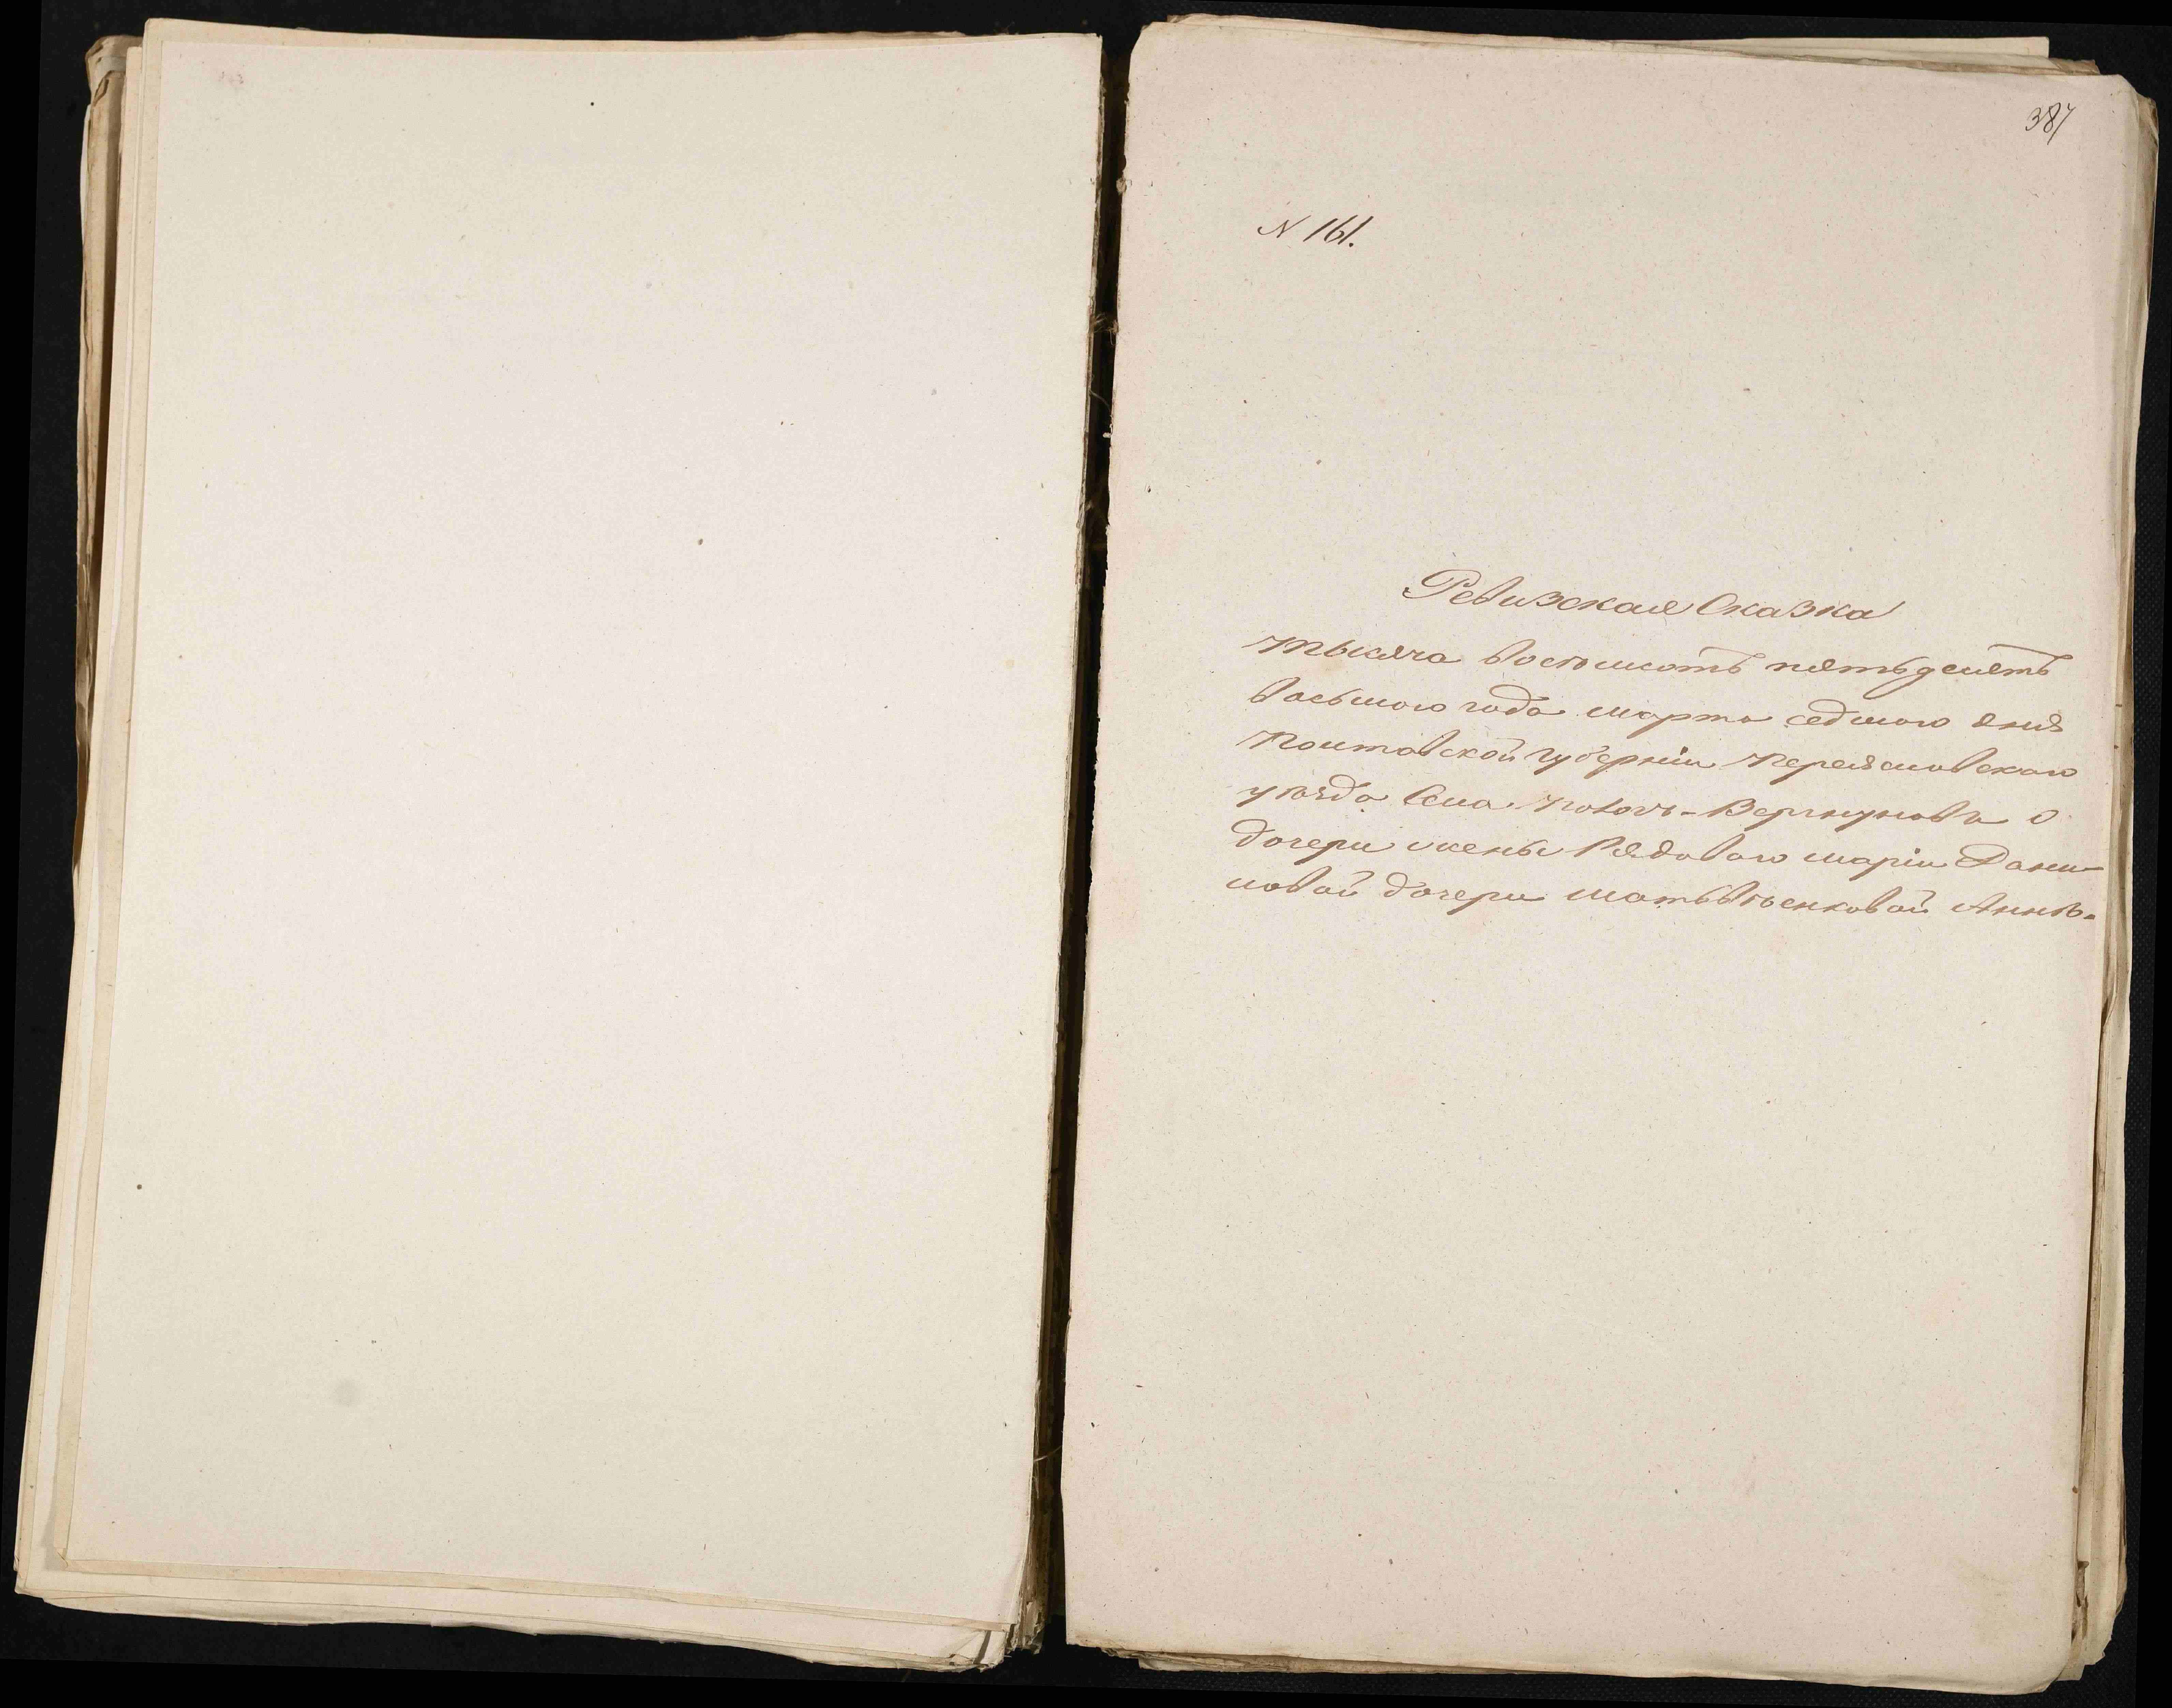 387
N 161.
Ревизская Сказка
тысяча восьмисотъ пятьдесятъ
восьмого года марта седмого дня
Полтавской губерніи Переясловского
уѣзда Села Вергунова о
дочери жены Рядового маріи Дани-
ловой дочери матьвѣенковой Аннѣ.